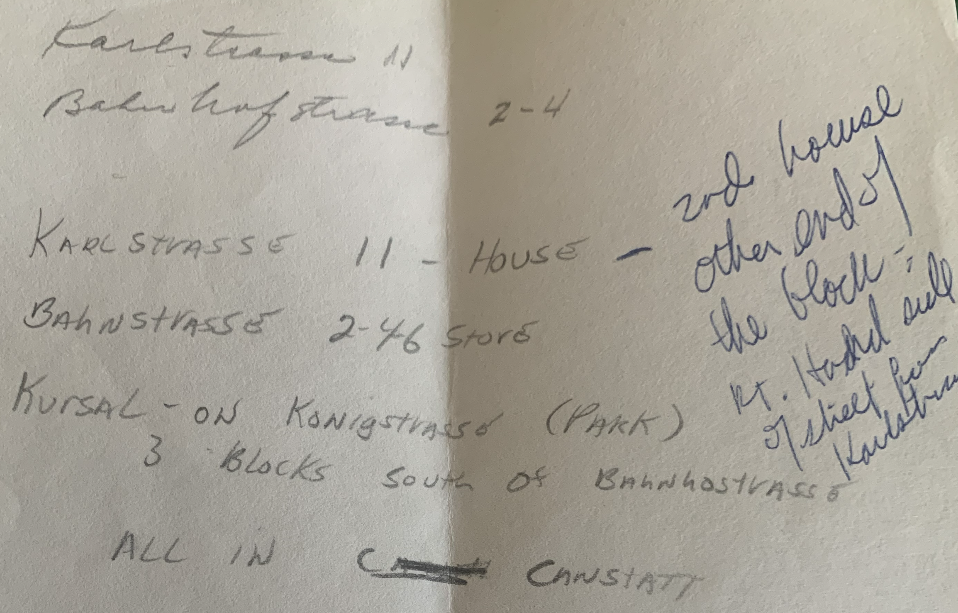 Karlstrasse 11
Bahnhofstrasse 2-4
KARLSTRASSE 11 - HOUSE -
BAHNSTRASSE 2-46 STORE
KURSAL - ON KONIGSTRASSE (PARK)
3 BLOCKS SOUTH OF BAHNHOSTRASSE
ALL IN CANSTATT
2nd house
other end of
the block -
rt. Hand side
of street from
Karlstrasse